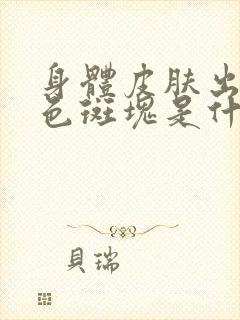 身體皮肤出
色斑塊是什
貝瑞